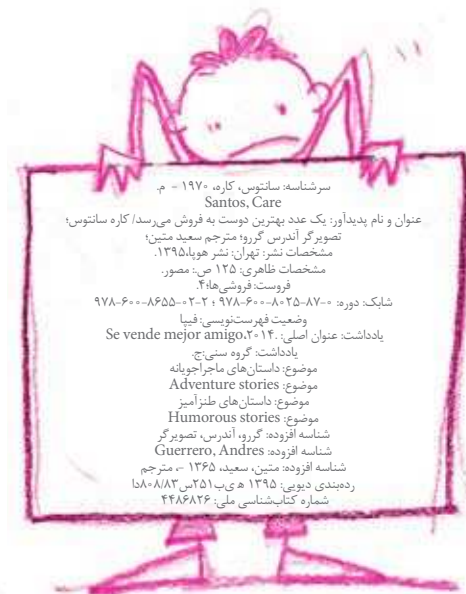 سرشناسه: سانتوس، کاره، ۱۹۷۰ - م.
Santos, Care
عنوان و نام پدیدآور: یک عدد بهترین دوست به فروش می‌رسد/ کاره سانتوس؛
تصویرگر آندرس گررو؛ مترجم سعید متین؛
مشخصات نشر: تهران: نشر هوپا،۱۳۹۵.
مشخصات ظاهری: ۱۲۵ ص.: مصور.
فروست: فروشی‌ها؛۴.
شابک: دوره: ۰-۸۷-۸۰۲۵-۶۰۰-۹۷۸ ؛ ۲-۰۲-۸۶۵۵-۶۰۰-۹۷۸
وضعیت فهرست‌نویسی: فیپا
یادداشت: عنوان اصلی: .Se vende mejor amigo،۲۰۱۴
یادداشت: گروه سنی:ج.
موضوع: داستان‌های ماجراجویانه
موضوع: Adventure stories
موضوع: داستان‌های طنزآمیز
موضوع: Humorous stories
شناسه افزوده: گررو، آندرس، تصویرگر
شناسه افزوده: Guerrero, Andres
شناسه افزوده: متین، سعید، ۱۳۶۵ -، مترجم
رده‌بندی دیویی: ۱۳۹۵ ه‍ ی‌ب۲۵۱س۸۰۸/۸۳دا
شماره کتاب‌شناسی ملی: ۴۴۸۶۸۲۶